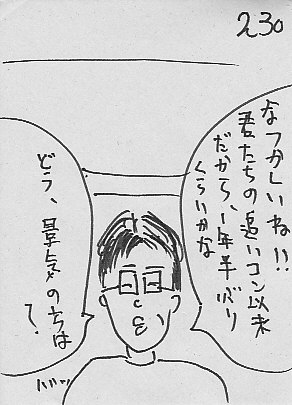 230
なつかしいね!!
君たちの追いコン以来
だから、1年半バリ
くらいかな
どう、景気のちは
?